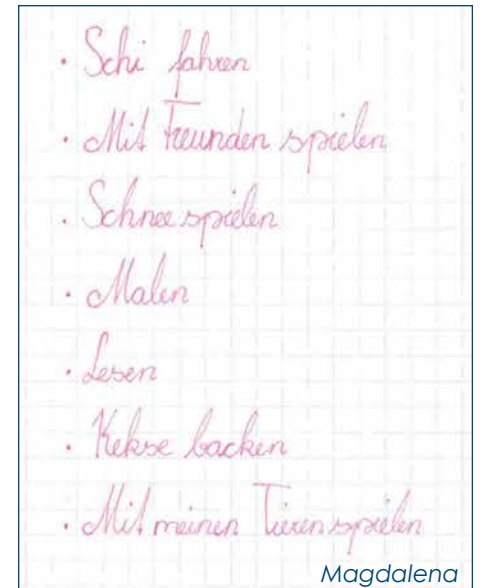 · Schi fahren
· Mit Freunden spielen
· Schnee spielen
· Malen
· Lesen
· Kekse backen
· Mit meinen Tieren spielen
Magdalena